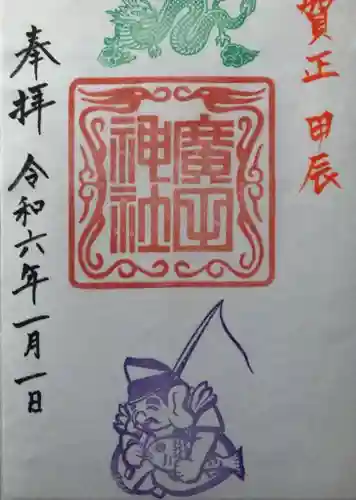 賀正 甲辰
廣田
神社
奉拝
令和六年一月一日